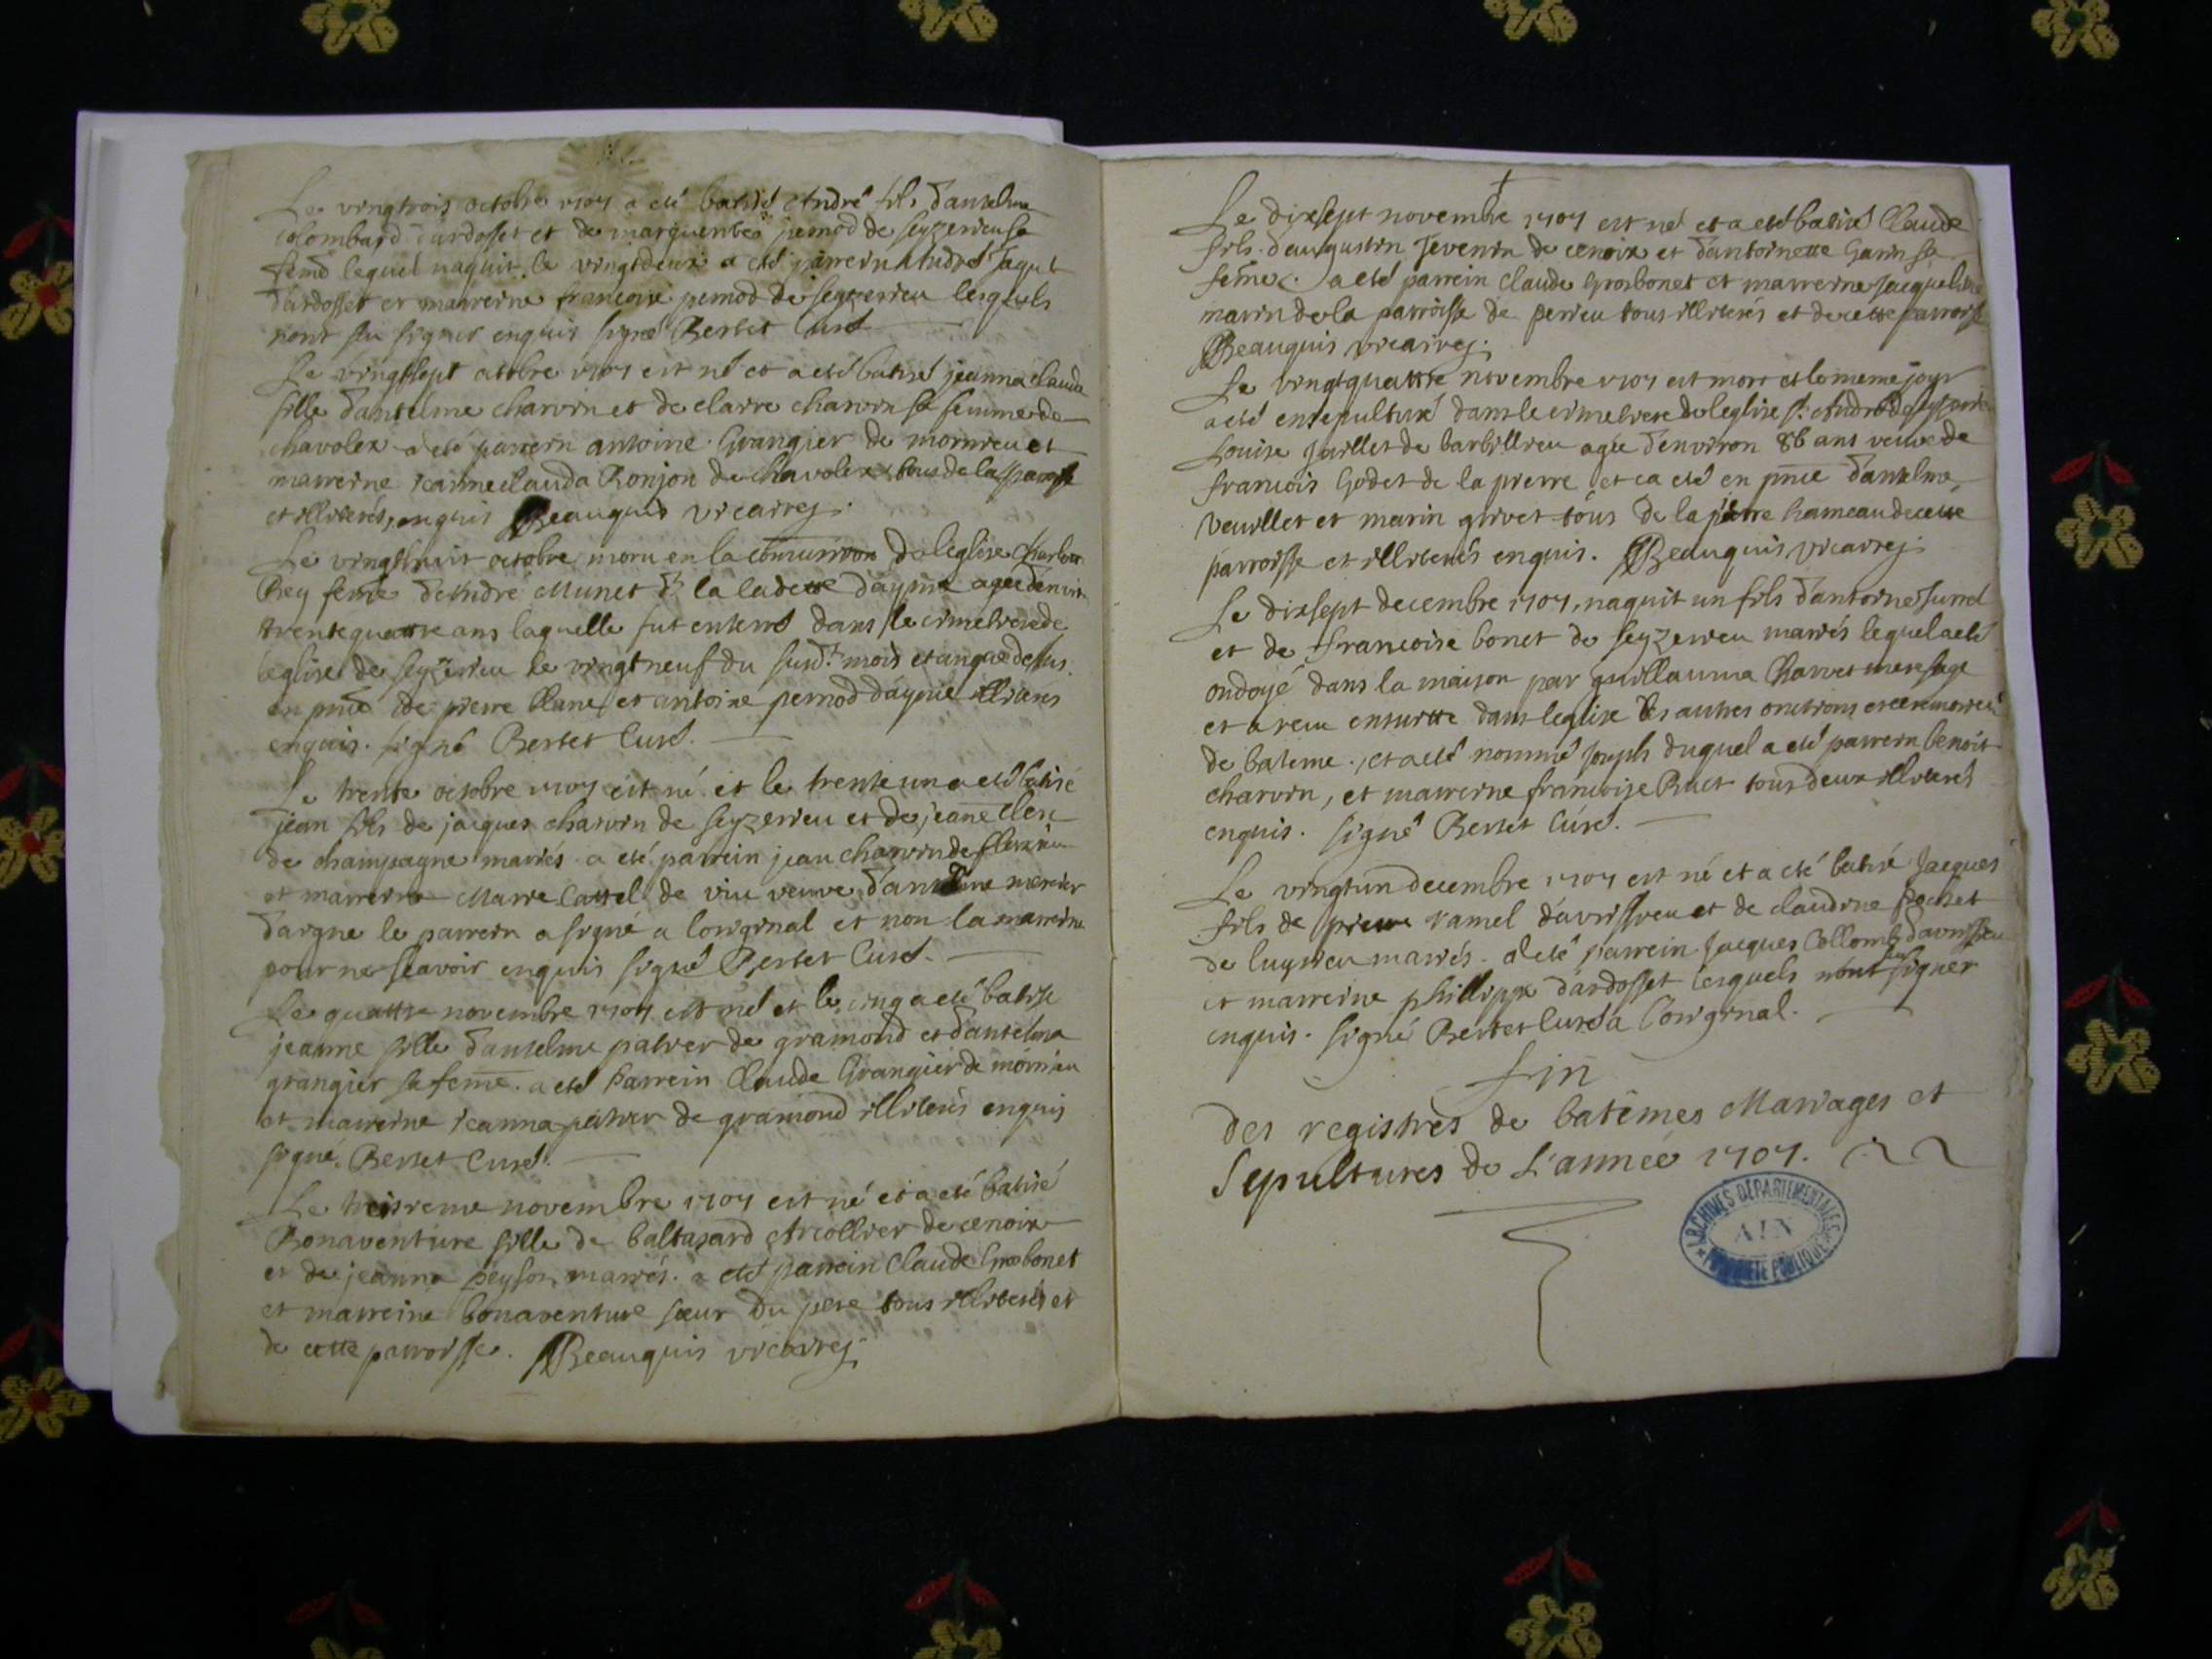 Le vingtrois octobre 1707 a eté batisé André fils d'anselme
colombard d'ardosset et de marguerite pernod de seyzerieu sa
feme lequel naquit le vingtdeux a eté parrein André Jaquet
d'ardosset et marreine francoise pernod de seyzerieu lesquels
nont su signer enquis signé Bertet Curé
Le vingtsept octobre 1707 est né et a eté batisé jeanna claude
fille d'anselme charvin et de clarre charvin sa femme de
chavolex a eté parrein antoine Grangier de mornieu et
marreine jeanneclauda Ronjon de chavolex tous de la parroisse
et illiterés, enquis Beauquis vicairej.
Le vingthuit octobre moru en la comunion de leglise
Rey feme d'André Munet de la d'aynie agee denvir
trentequattre ans laquelle fut enterré dans le cimetiere de
leglise de seyzerieu le vingtneuf du susd.t mois et an que dessus
en pnce de pierre et antoine pernod d'aynie illiterés
enquis. signé Bertet Curé.
Le trente octobre 1707 est né et le trenteun a eté batisé
jean fils de jacques charvin de seyzerieu et de jeanne clerc
de champagne mariés a eté parrein jean charvin de
et marreine Marie Cattel de viu veuve d'anselme mercier
d'argne le parrein a signé a loriginal et non la marreine
pour ne scavoir enquis signé Bertet Curé.
Le quattre novembre 1707 est né et le cinq a eté batisé
jeanne fille d'anselme patier de gramond et d'anselma
grangier sa feme. a eté Parrein Claude Grangier de mornieu
et marreine jeanna patier de gramond illiterés enquis
signé Bertet Curé.
Le treisieme novembre 1707 est né et a eté batisé
Bonaventure fille de baltazard Arcollier de cenoix
et de jeanna peyson mariés. a eté parrein Claude Grosbonet
et marreine bonaventure sœur du pere tous illiterés et
de cette parroisse. Beauquis vicairej
Le dixsept novembre 1707 est né et a eté batisé Claude
fils d'augustin Jevenin de cenoix et d'antoinette Garin sa
feme. a eté parrein claude Grosbonet et marreine jacqueline
marin de la parroisse de perieu tous illiterés et de cette parroisse
Beauquis vicairej.
Le vingtquattre novembre 1707 est mort et le meme jour
a eté ensepulturé dans le cimetiere de leglise st. André de seyzerieu
Louise Juillet de barbillieu agée d'environ 86 ans veuve de
francois Godet de la pierre et ca eté en pnce d'anselme
Veuillet et marin girvet tous de la pierre hameau de cette
parroisse et illiterés enquis. Beauquis vicairej
Le dixsept decembre 1707, naquit un fils d'antoine Surrel
et de francoise bonet de seyzerieu mariés lequel a eté
ondoyé dans la maison par guillauma Charvet mere sage
et a receu ensuitte dans leglise les autres onctions et ceremonies
de bateme. et a eté nommé joseph duquel a eté parrein benoit
charvin, et marreine francoise Ruet tous deux illiterés
enquis. signé Bertet Curé.
Le vingtun decembre 1707 est né et a eté batisé Jacques
fils de pierre ramel d'avrissieu et de claudine pochet
de luyrieu mariés. a eté parrein Jacques Collomb d'avrissieu
et marreine phillippe d'ardosset lesquels n'ont su signer
enquis. signé Bertet Curé a Loriginal.
fin
des registres de batêmes Mariages et
Sepultures de L'année 1707.
ARCHIVES DÉPARTEMENTALES
AIN
PROPRIÉTÉ PUBLIQUE